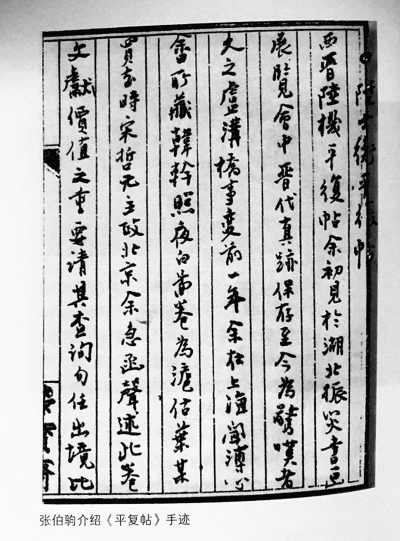 陸士衡平復帖
西晋陸機平復帖余初見於湖北振災書画
展覧會中晋代真跡保存至今為驚嘆者
久之盧溝橋事變前一年余在上海聞溥心
畬所藏韓幹照夜白畵卷為滬估葉某
買去時宋哲元主政北京余急函聲述此卷
文獻價值之重要請其查詢勿任出境比
张伯驹介绍《平复帖》手迹